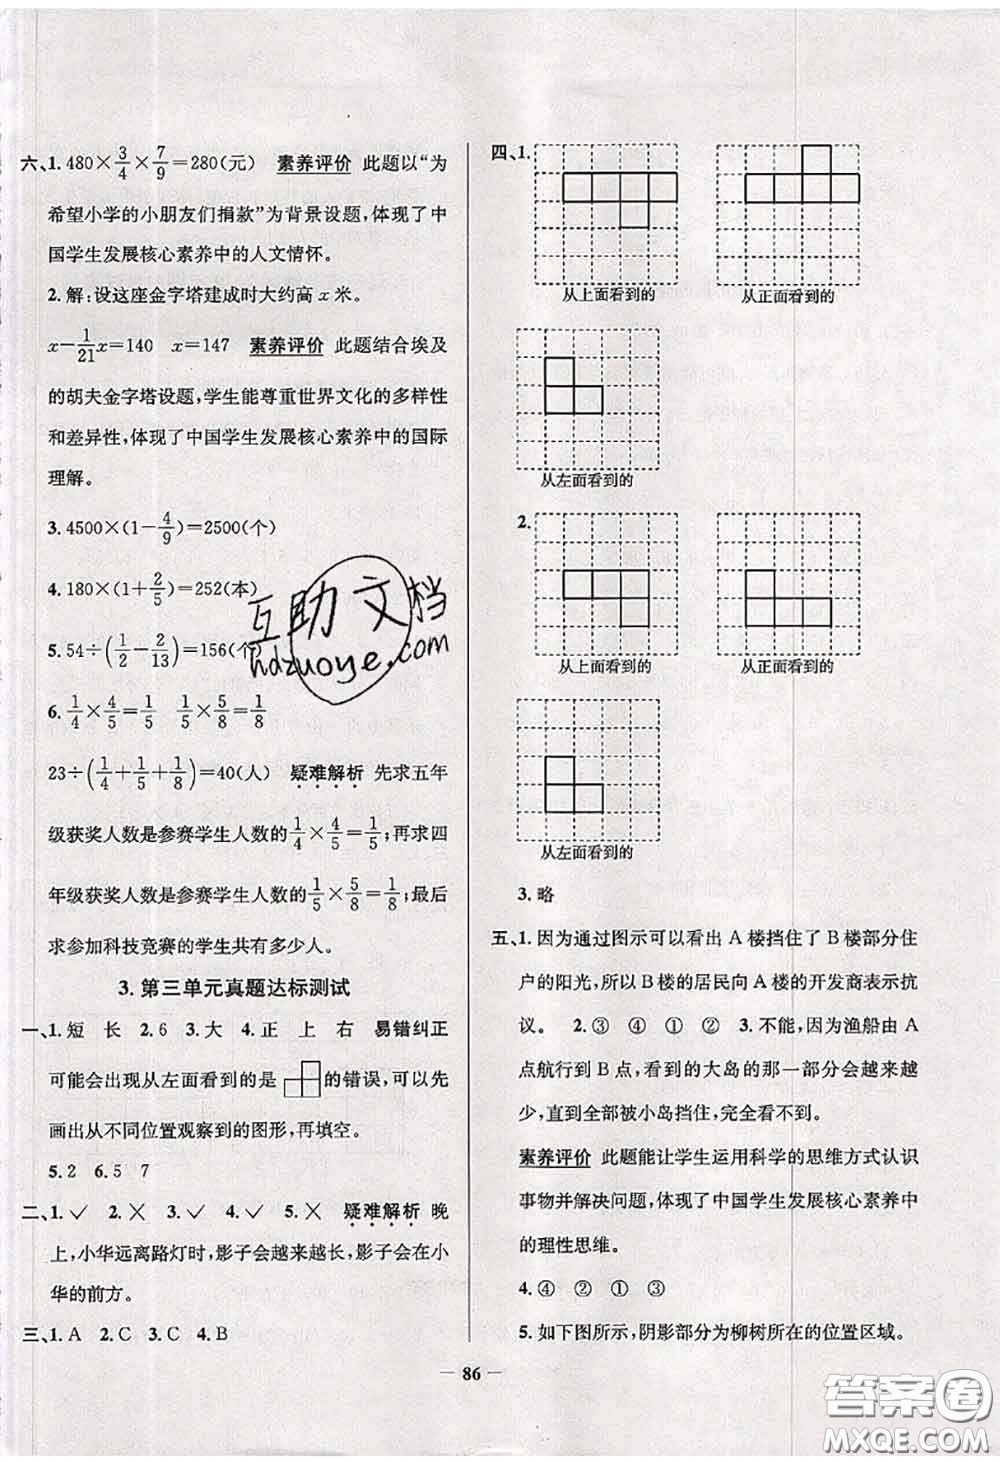 六、1. 480×3/4×7/9=280(元) 素养评价 此题以“为
希望小学的小朋友们捐款”为背景设题，体现了中
国学生发展核心素养中的人文情怀。
2. 解：设这座金字塔建成时大约高 x 米。
x−1/21x=140 x=147 素养评价 此题结合埃及
的胡夫金字塔设题，学生能尊重世界文化的多样性
和差异性，体现了中国学生发展核心素养中的国际
理解。
3. 4500×(1−4/9)=2500(个)
4. 180×(1+2/5)=252(本)
5. 54÷(1/2−2/13)=156(个)
6. 1/4×4/5=1/5 1/5×5/8=1/8
23÷(1/4+1/5+1/8)=40(人) 疑难解析 先求五年
级获奖人数是参赛学生人数的1/4×4/5=1/5；再求四
年级获奖人数是参赛学生人数的1/5×5/8=1/8；最后
求参加科技竞赛的学生共有多少人。
3. 第三单元真题达标测试
一、1. 短 长 2. 6 3. 大 4. 正 上 右 易错纠正
可能会出现从左面看到的是 的错误，可以先
画出从不同位置观察到的图形，再填空。
5. 2 6. 5 7
二、1. ✓ 2. ✕ 3. ✓ 4. ✓ 5. ✕ 疑难解析 晚
上，小华远离路灯时，影子会越来越长，影子会在小
华的前方。
三、1. A 2. C 3. C 4. B
四、1.
从上面看到的 从正面看到的
从左面看到的
2.
从上面看到的 从正面看到的
从左面看到的
3. 略
五、1. 因为通过图示可以看出 A 楼挡住了 B 楼部分住
户的阳光，所以 B 楼的居民向 A 楼的开发商表示抗
议。 2. ③ ④ ① ② 3. 不能，因为渔船由 A
点航行到 B 点，看到的大岛的那一部分会越来越
少，直到全部被小岛挡住，完全看不到。
素养评价 此题能让学生运用科学的思维方式认识
事物并解决问题，体现了中国学生发展核心素养中
的理性思维。
4. ④ ② ① ③
5. 如下图所示，阴影部分为柳树所在的位置区域。
— 86 —
互助文档
hdzuoye.com
答案圈
MXQE.COM